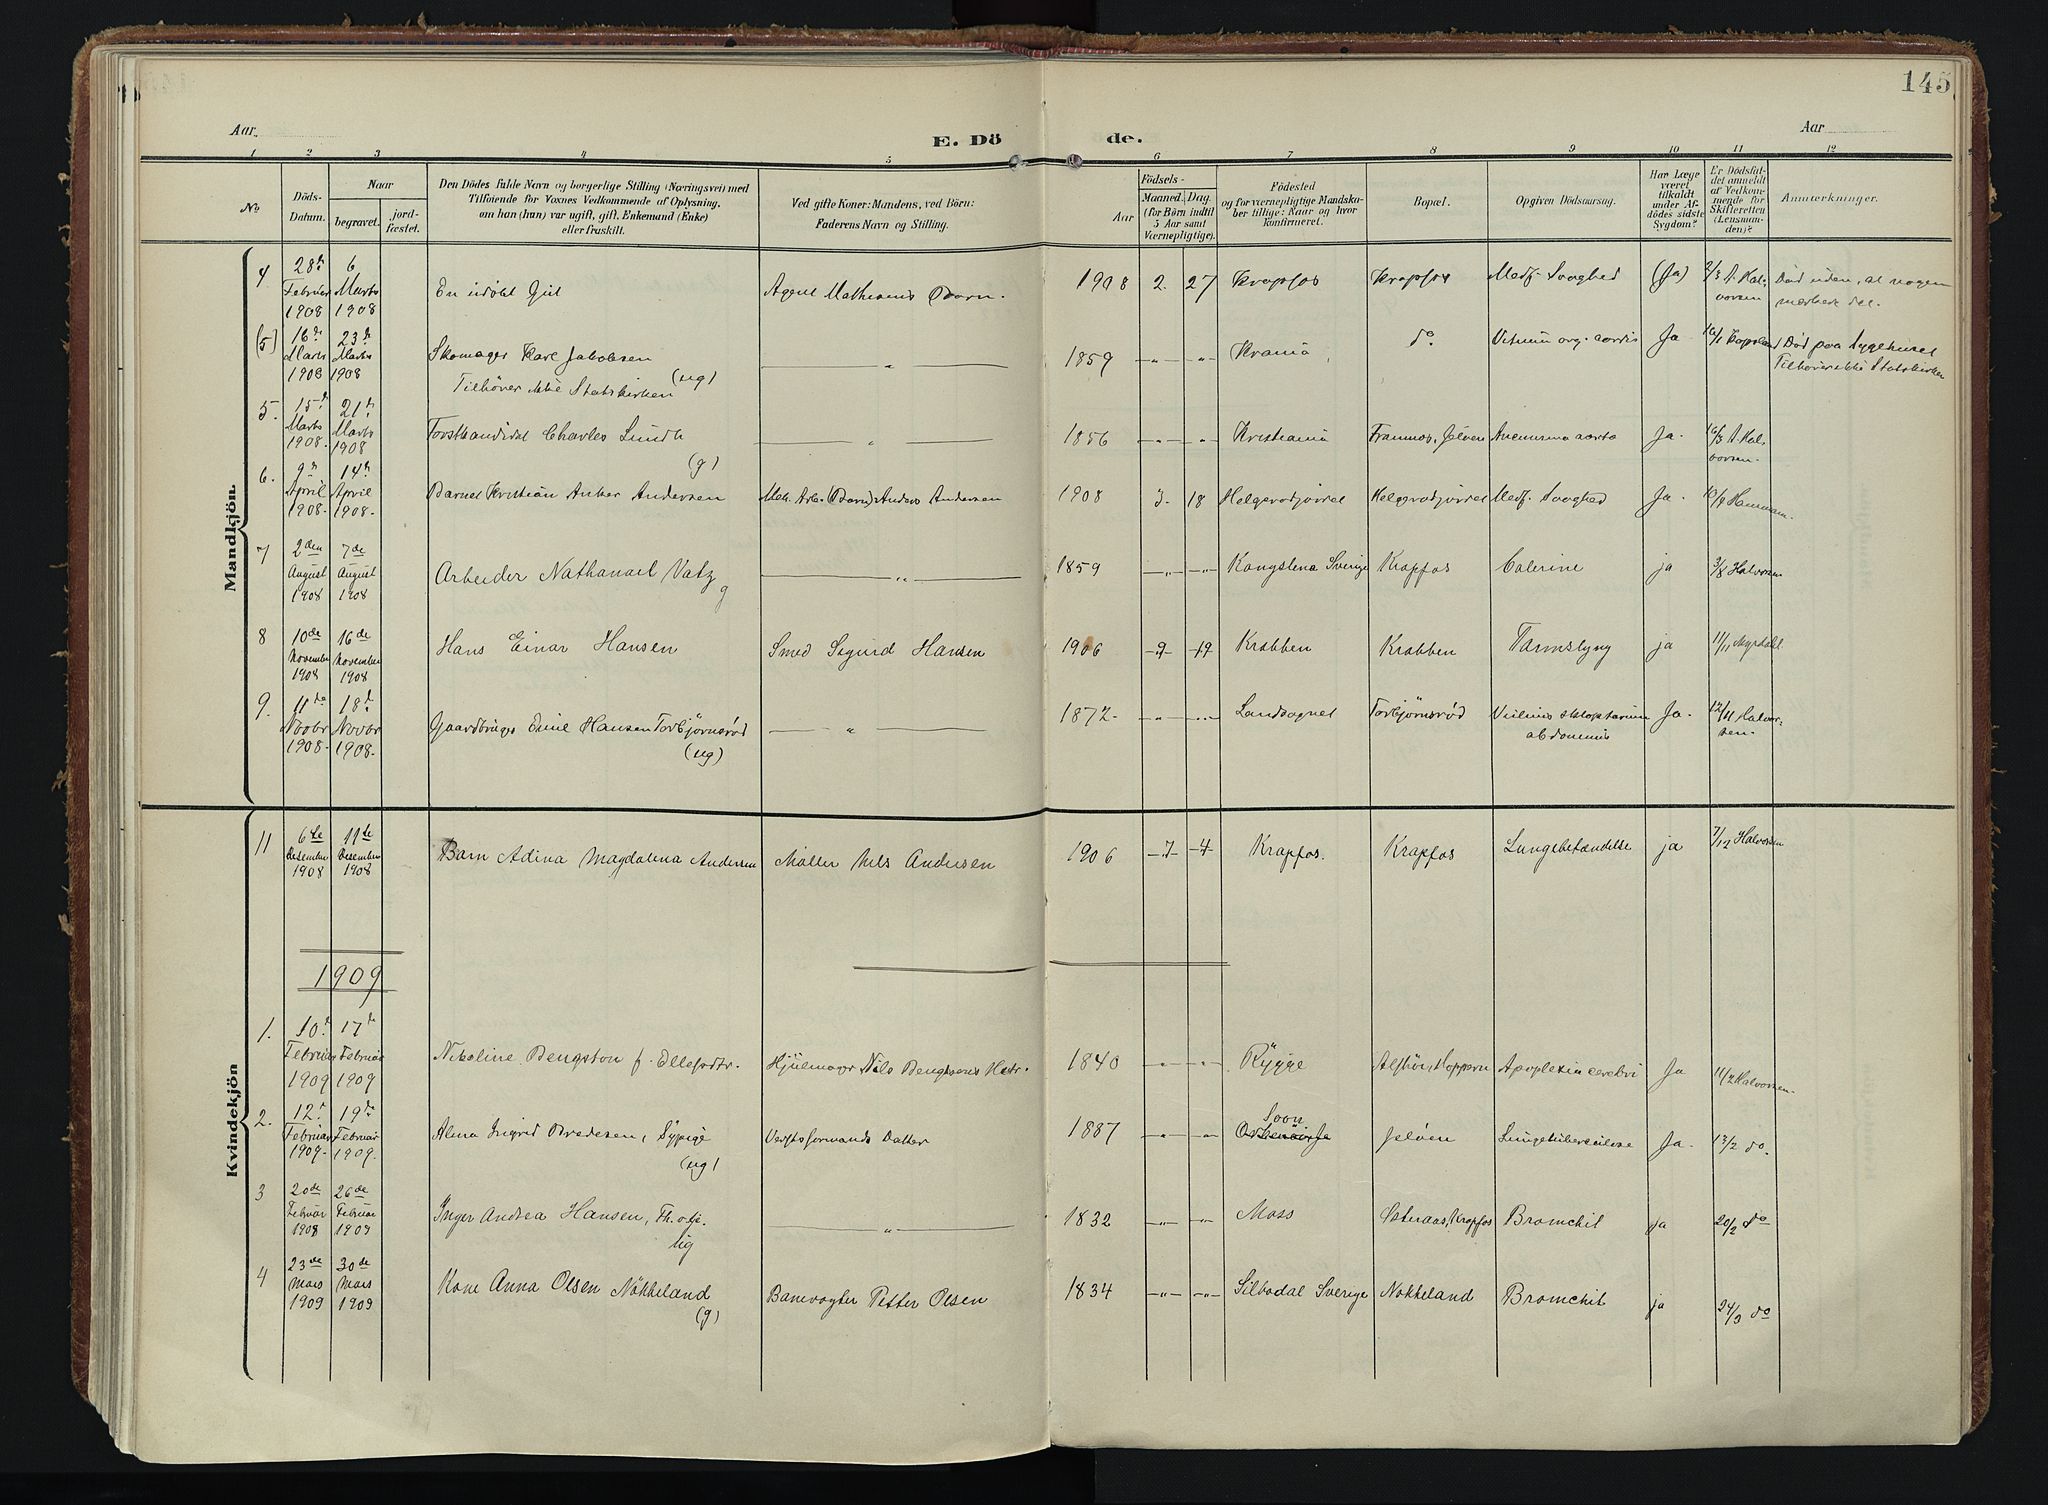 145
Aar
E. Dö de.
Aar
1 2 3 4 5 6 7 8 9 10 11 12
No.
Döds-Datum.
Naar
begravet.
jord-fæstet.
Den Dödes fulde Navn og borgerlige Stilling (Næringsvei) med
Tilföiende for Voxnes Vedkommende af Oplysning,
om han (hun) var ugift, gift, Enkemand (Enke)
eller fraskilt.
Ved gifte Koner: Mandens, ved Börn:
Faderens Navn og Stilling.
Födsels-
Aar
Maaned. Dag
(for Börn indtil
5 Aar samt
Værnepligtige).
Födested
og for værnepligtige Mandska-
ber tillige: Naar og hvor
konfirmeret.
Bopæl.
Opgiven Dödsaarsag.
Har Læge
været
tilkaldt
under Af-
dödes sidste
Sygdom?
Er Dödsfal-
det anmeldt
af Vedkom-
mende for
Skifteretten
(Lensman-
den)?
Anmerkninger.
Mandkjön.
4 28de Februar 1908 6 Marts 1908 En udöbt Gut Agent Mathisens Barn. 1908 2. 27 Krapfos Krapfos Medf. Svaghed (Ja) 2/3 A. Halvorsen Död uden, at nogen
mærkede det.
(5) 16de Marts 1908 23de Marts 1908 Skomager Karl Jakobsen (ug)
Tilhører ikke Statskirken
" 1859 " " Krania do Vitium org. cordis Ja Död paa Sygehuset
Tilhører ikke Statskirken
5. 15de Marts 1908. 21de Marts 1908 Forstkandidat Charles Lundh (g) " 1856 " " Kristiania Framnæs, Jeløen Aneurisma aorta Ja. 16/3 A. Halvorsen.
6. 9de April 1908. 14de April 1908. Barnet Kristian Anker Andersen Mek. Arb. (Barn) Anders Andersen 1908 3. 18 Helgerødgjerdet Helgerødgjerdet Medf. Svaghed Ja.
7 2den August 1908 7de August 1908 Arbeider Nathanael Vatz g " 1859 " " Kongslena Sverige Krapfos Colerine ja 3/8 Halvorsen
8 10de November 1908 16de November 1908 Hans Einar Hansen Smed Sigurd Hansen 1906 9 19 Krabben Krabben Tarmslyng ja 11/11 Myrdahl
9. 11de Novbr 1908. 18de Novbr 1908. Gaardbruger Emil Hansen Torbjørnsrød (ug) " 1872. " " Landsognet Torbjørnsrød Vulnus sklopetarium
abdominis Ja. 12/11 Halvorsen.
Kvindekjön
11 6te Desember 1908 11te Desember 1908 Barn Adina Magdalena Andersen Maller Nils Andersen 1906 7 4 Krapfos. Krapfos Lungebetændelse ja 7/12 Halvorsen
1909
1. 10de Februar 1909 17de Februar 1909 Nikoline Bengston f. Ellefsdtr. Hjulmager Nils Bengtsons Hustr. 1840 " " Rygge Apoplexia cerebri Ja 11/2 Halvorsen.
2. 12te Februar 1909. 19de Februar 1909. Alma Ingrid Bredesen, Sypige (ug) Verftsformands Datter 1887 " " Soon Jeløen Lungetuberculose Ja. 13/2 do.
3 20de Februar 1908 26de Februar 1909 Inger Andrea Hansen, " 1832 " " Moss Østeraas, Krapfos Bronchit ja 20/2 do
4 23de Mars 1909 30de Mars 1909 Kone Anna Olsen Nökkeland (g) Banevogter Petter Olsen 1834 " " Silbodal Sverige Nøkkeland Bronchit ja 24/3 do